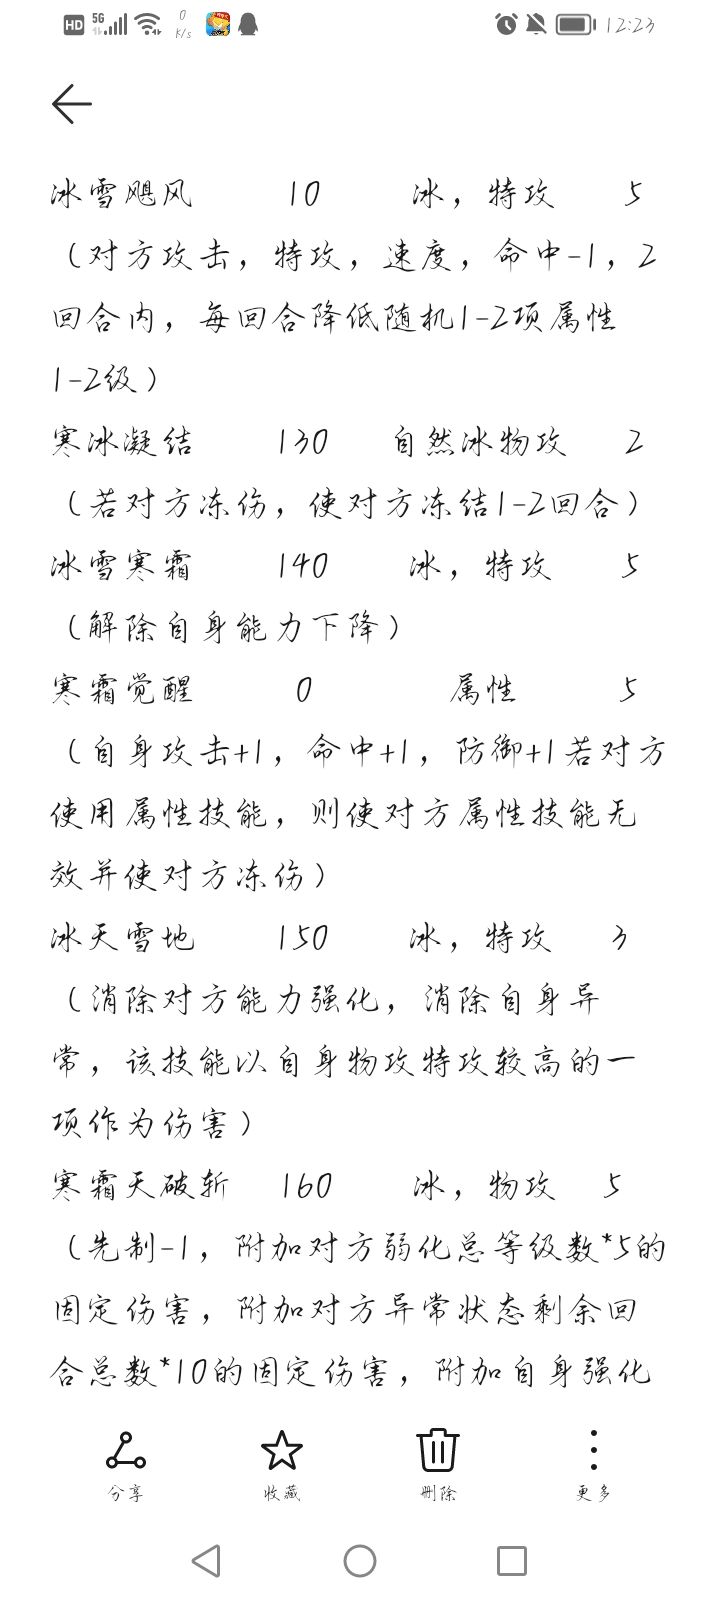 HD 5G 0 K/s 12:23
冰雪飓风 10 冰，特攻 5
（对方攻击，特攻，速度，命中-1，2
回合内，每回合降低随机1-2项属性
1-2级）
寒冰凝结 130 自然冰物攻 2
（若对方冻伤，使对方冻结1-2回合）
冰雪寒霜 140 冰，特攻 5
（解除自身能力下降）
寒霜觉醒 0 属性 5
（自身攻击+1，命中+1，防御+1若对方
使用属性技能，则使对方属性技能无
效并使对方冻伤）
冰天雪地 150 冰，特攻 3
（消除对方能力强化，消除自身异
常，该技能以自身物攻特攻较高的一
项作为伤害）
寒霜天破斩 160 冰，物攻 5
（先制-1，附加对方弱化总等级数*5的
固定伤害，附加对方异常状态剩余回
合总数*10的固定伤害，附加自身强化
分享 收藏 删除 更多